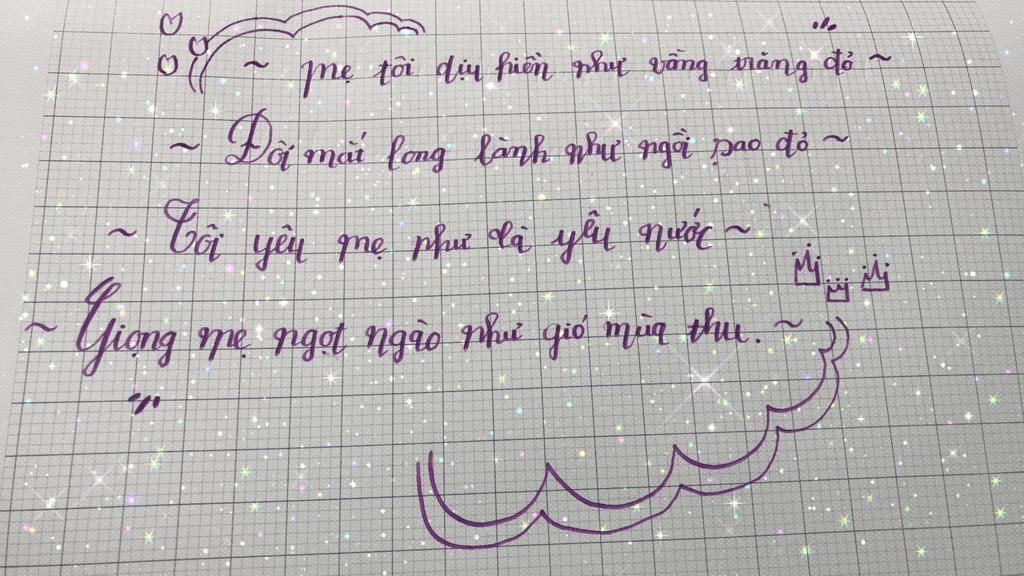 ~ Mẹ tôi dịu hiền như vầng trăng đỏ ~
~ Đôi mắt long lành như ngôi sao đỏ ~
~ Tôi yêu mẹ như là yêu nước ~
~ Giọng mẹ ngọt ngào như gió mùa thu. ~